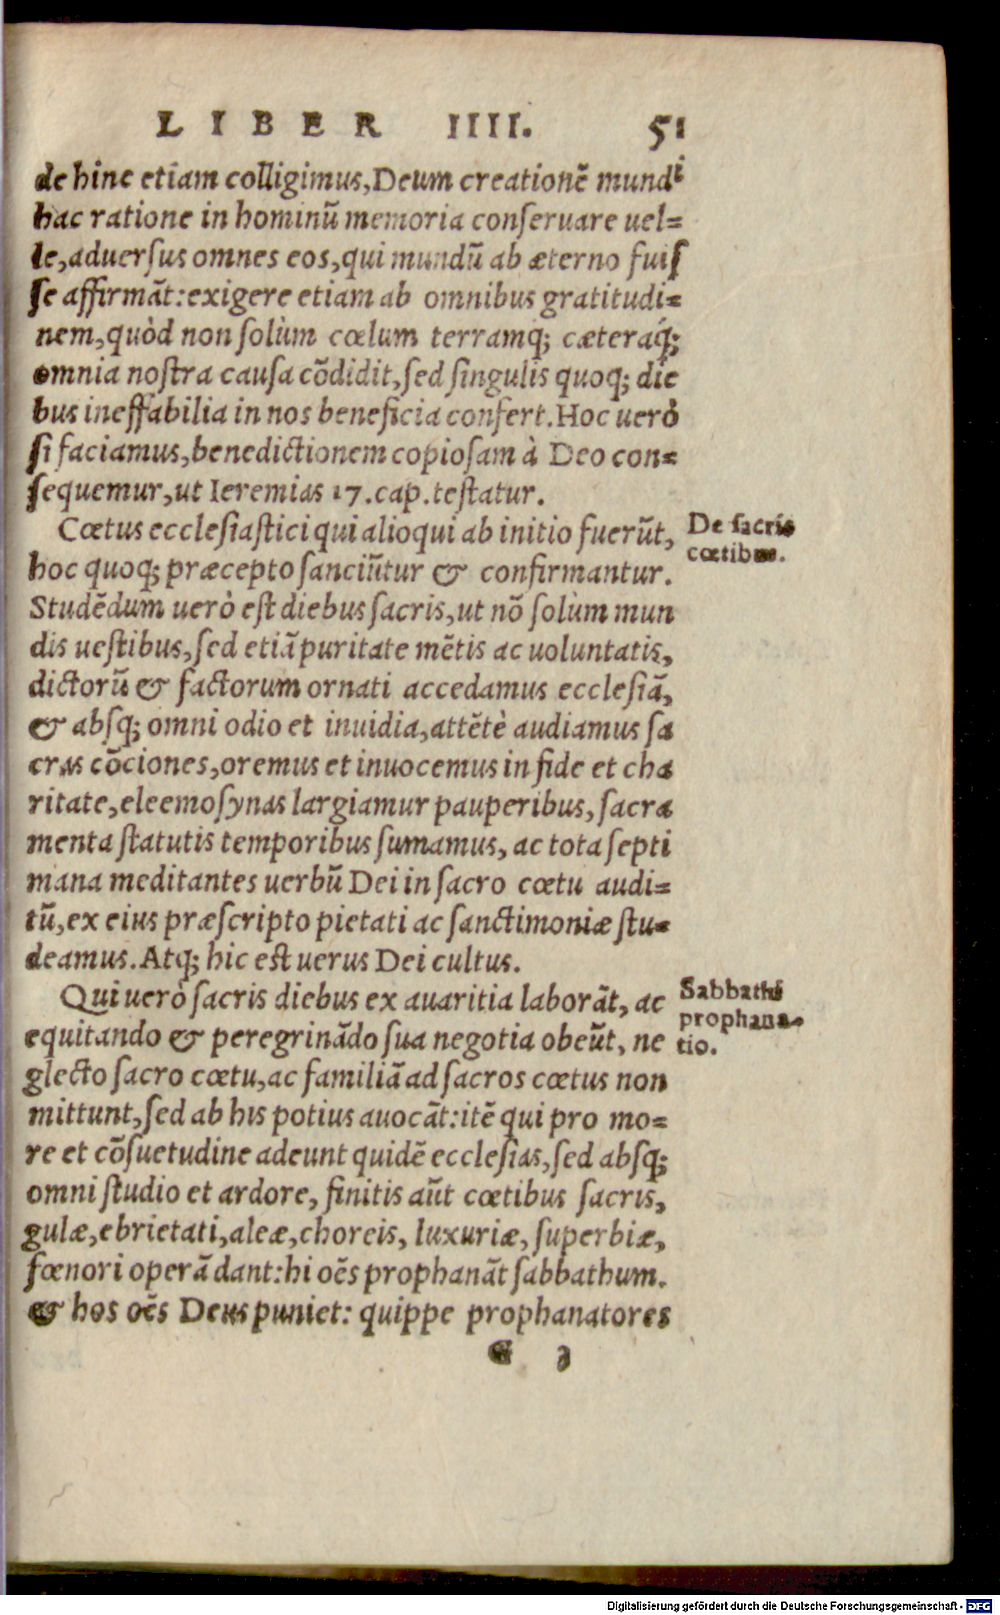 LIBER IIII. 51
de hinc etiam colligimus, Deum creationẽ mundi
hac ratione in hominũ memoria conſeruare uel=
le, aduerſus omnes eos, qui mundũ ab æterno fuiſ
ſe affirmãt: exigere etiam ab omnibus gratitudi=
nem, quòd non ſolùm cœlum terramq́; cæteraq́;
omnia noſtra cauſa cõdidit, ſed ſingulis quoq; die
bus ineffabilia in nos beneficia confert. Hoc uerò
ſi faciamus, benedictionem copioſam à Deo con=
ſequemur, ut Ieremias 17. cap. teſtatur.
Cœtus eccleſiaſtici qui alioqui ab initio fuerũt,
De ſacris
cœtibus.
hoc quoq; præcepto ſanciũtur & confirmantur.
Studẽdum uerò eſt diebus ſacris, ut nõ ſolùm mun
dis ueſtibus, ſed etiã puritate mẽtis ac uoluntatis,
dictorũ & factorum ornati accedamus eccleſiã,
& abſq; omni odio et inuidia, attẽtè audiamus ſa
cras cõciones, oremus et inuocemus in fide et cha
ritate, eleemoſynas largiamur pauperibus, ſacra
menta ſtatutis temporibus ſumamus, ac tota ſepti
mana meditantes uerbũ Dei in ſacro cœtu audi=
tũ, ex eius præſcripto pietati ac ſanctimoniæ ſtu=
deamus. Atq; hic eſt uerus Dei cultus.
Qui uerò ſacris diebus ex auaritia laborãt, ac
Sabbathi
prophana=
tio.
equitando & peregrinãdo ſua negotia obeũt, ne
glecto ſacro cœtu, ac familiã ad ſacros cœtus non
mittunt, ſed ab his potius auocãt: itẽ qui pro mo=
re et cõſuetudine adeunt quidẽ eccleſias, ſed abſq;
omni ſtudio et ardore, finitis aũt cœtibus ſacris,
gulæ, ebrietati, aleæ, choreis, luxuriæ, ſuperbiæ,
fœnori operã dant: hi oẽs prophanãt ſabbathum.
& hos oẽs Deus puniet: quippe prophanatores
G 3
Digitalisierung gefördert durch die Deutsche Forschungsgemeinschaft - DFG